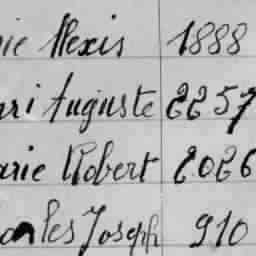 ie Alexis 1888
ri Auguste 2257
arie Robert 2026
arles Joseph 910